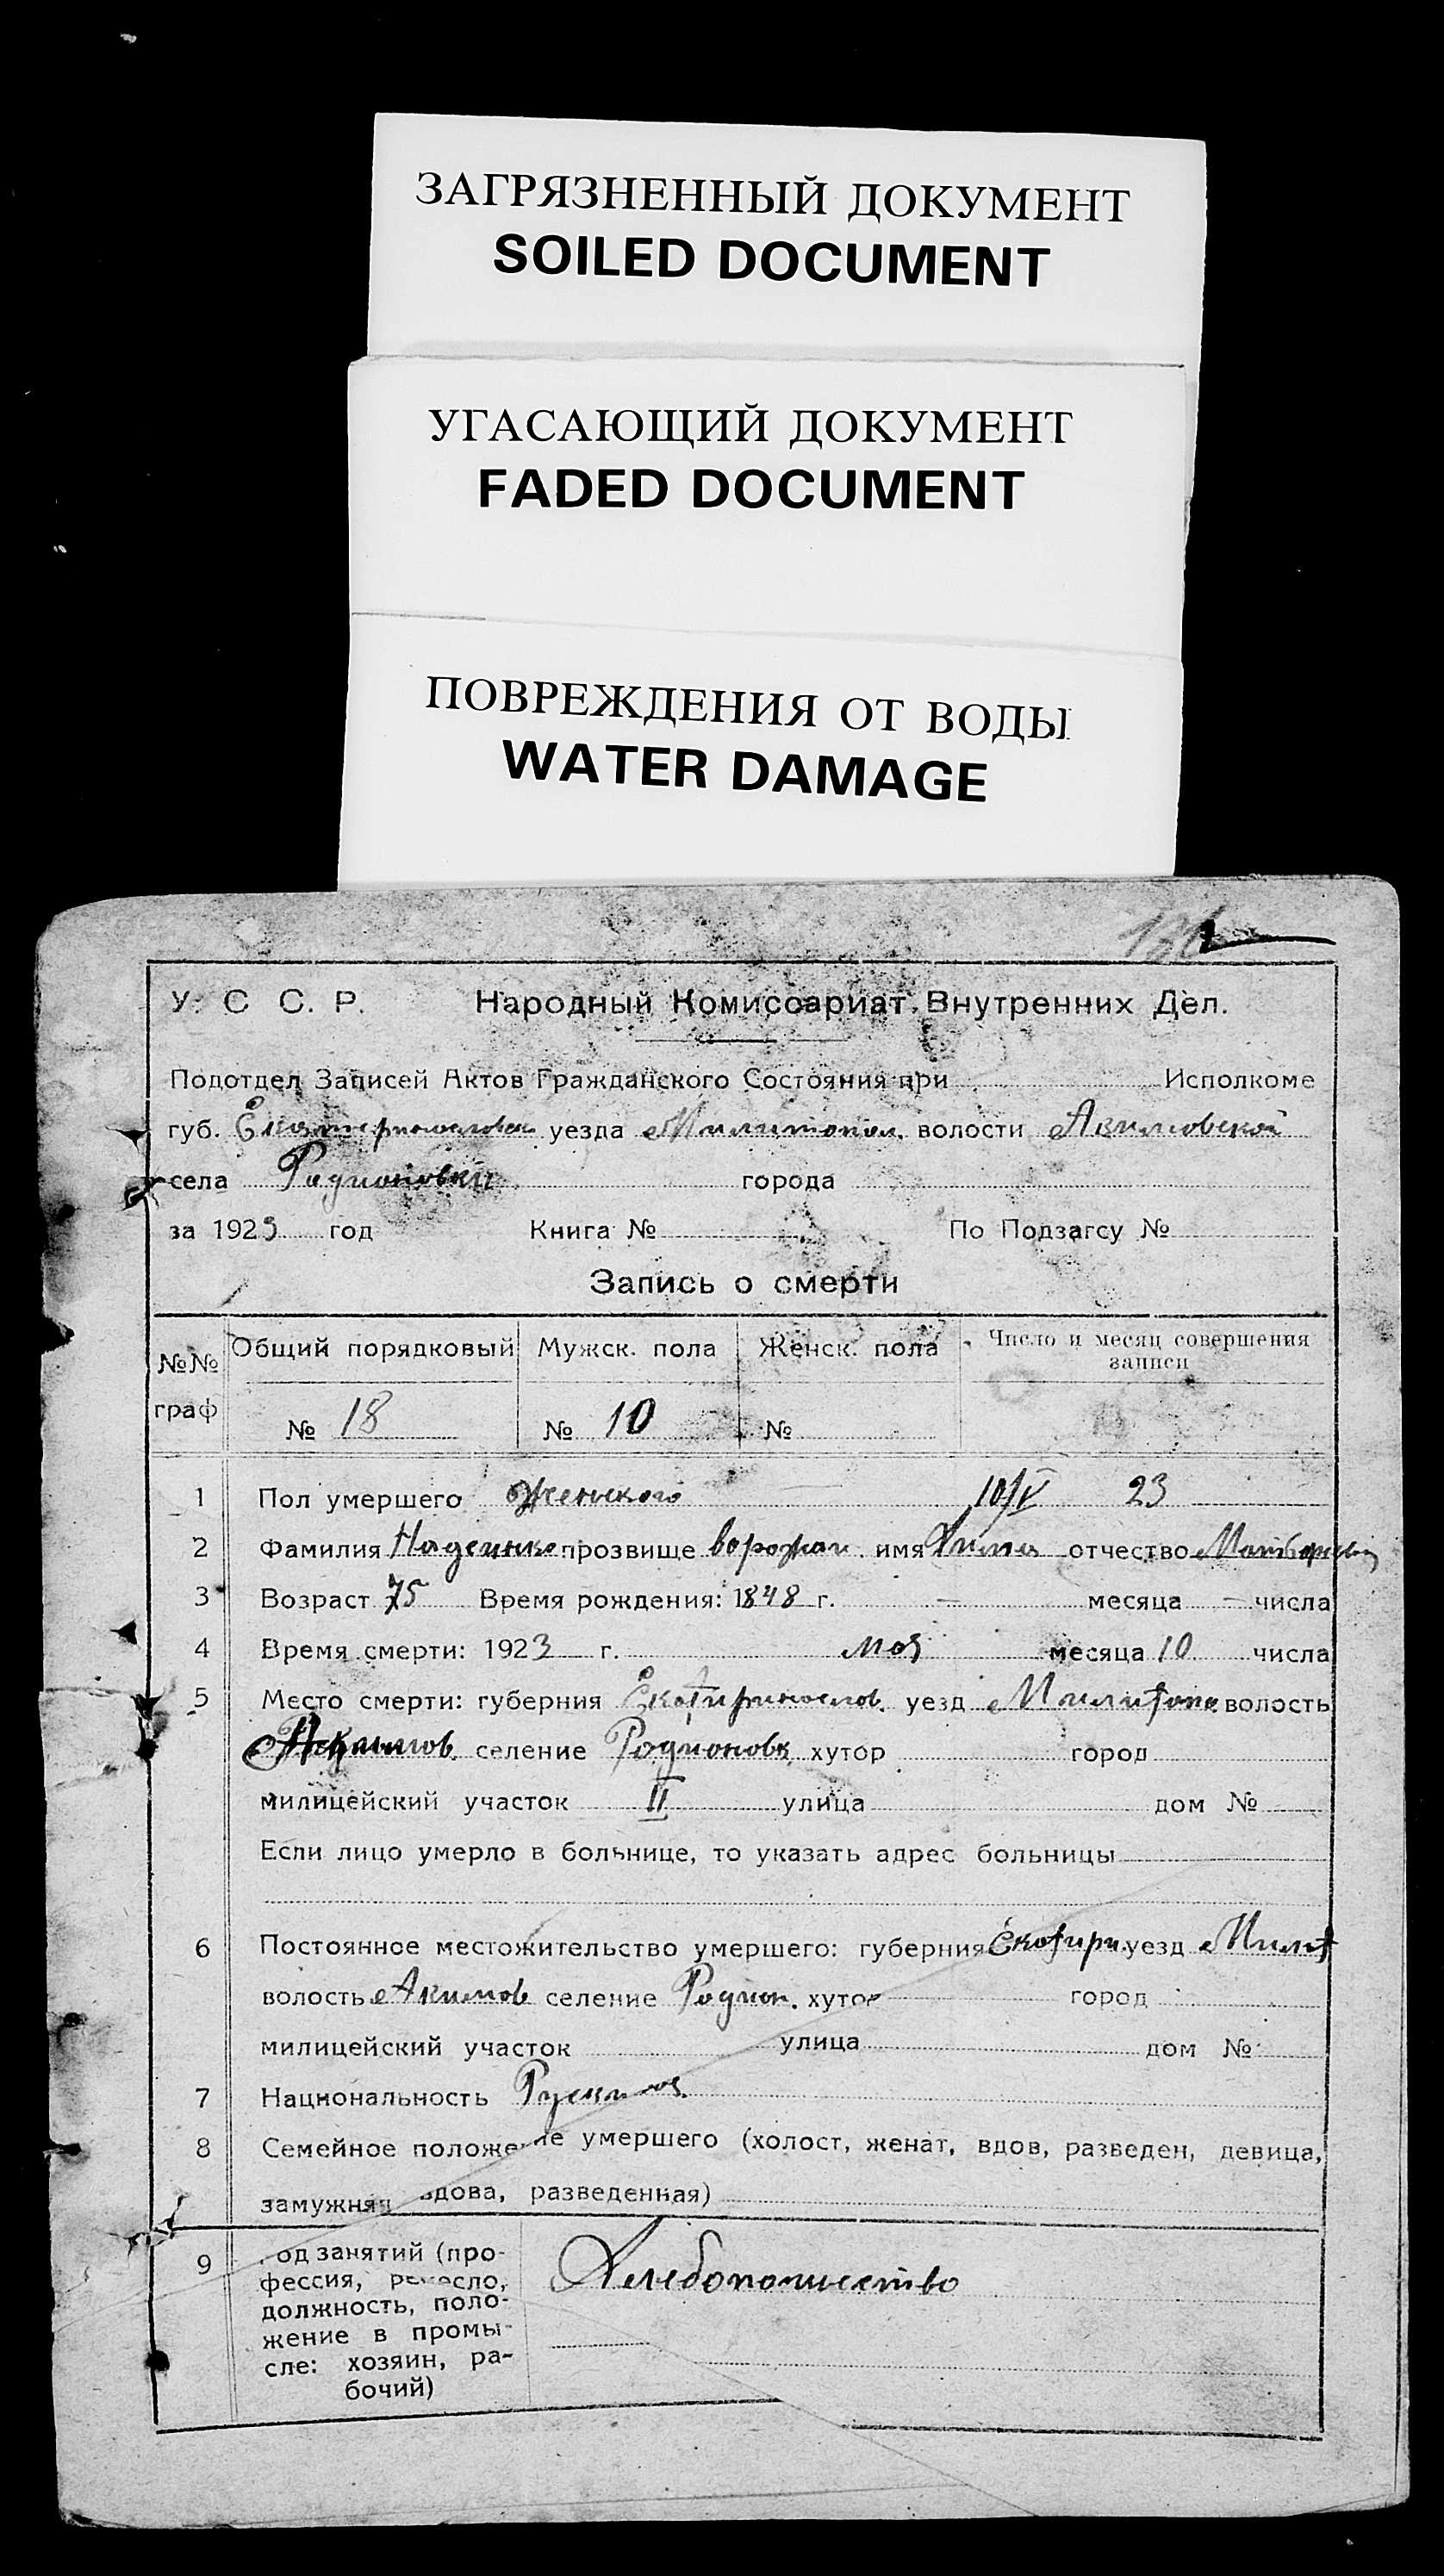 ЗАГРЯЗНЕННЫЙ ДОКУМЕНТ
SOILED DOCUMENT
УГАСАЮЩИЙ ДОКУМЕНТ
FADED DOCUMENT
ПОВРЕЖДЕНИЯ ОТ ВОДЫ
WATER DAMAGE
У. С С. Р. Народный Комиссариат Внутренних Дел.
Подотдел Записей Актов Гражданского Состояния при Исполкоме
губ. уезда Милитопол. волости Акимовской
села Родионовки города
за 1923 год Книга № По Подзагсу №
Запись о смерти
№№ граф Общий порядковый Мужск. пола Женск. пола Число и месяц совершения записи
№ 18 № 10 №
1 Пол умершего Женского 10/V 23
2 Фамилия прозвище имя отчество
3 Возраст 75 Время рождения: 1848 г. — месяца — числа
4 Время смерти: 1923 г. моя месяца 10 числа
5 Место смерти: губерния уезд волость
селение Родионовк хутор город
милицейский участок II улица дом №
Если лицо умерло в больнице, то указать адрес больницы
6 Постоянное местожительство умершего: губерния уезд Милит
волость Акимов селение Родион. хутор город
милицейский участок улица дом №
7 Национальность
8 Семейное положение умершего (холост, женат, вдов, разведен, девица,
замужняя вдова, разведенная)
9 од занятий (про-
фессия, ремесло,
должность, поло-
жение в промы-
сле: хозяин, ра-
бочий)